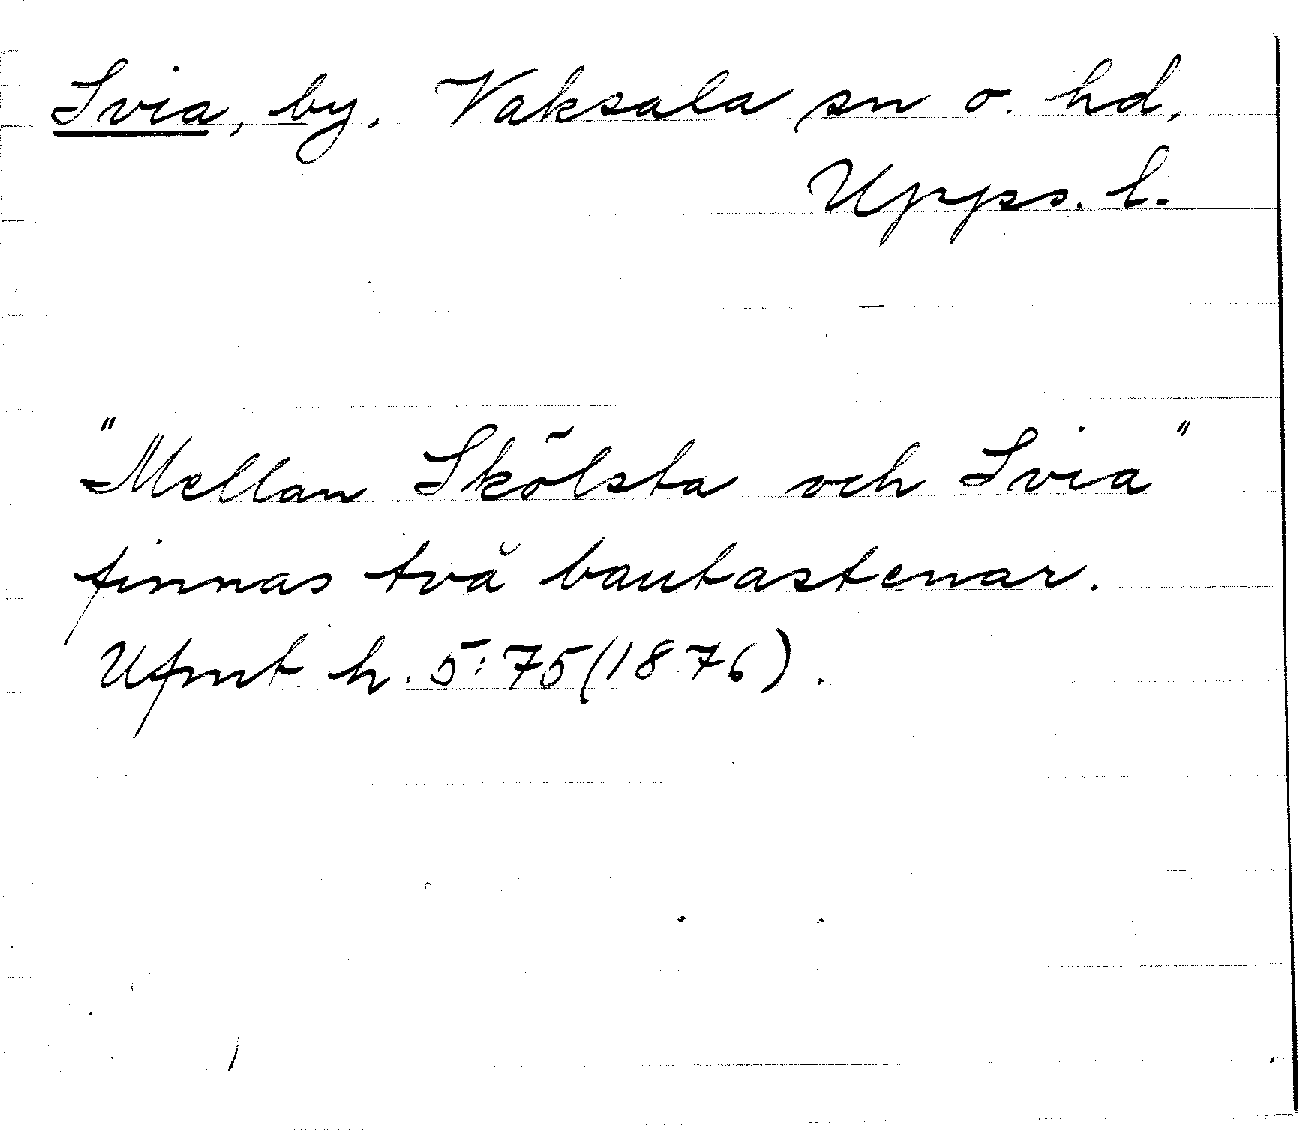 Svia, by, Vaksala sn o. hd,
Upps. l.
"Mellan Skölsta och Svia"
finnas två bautastenar.
Ufmt h. 5:75(1876).